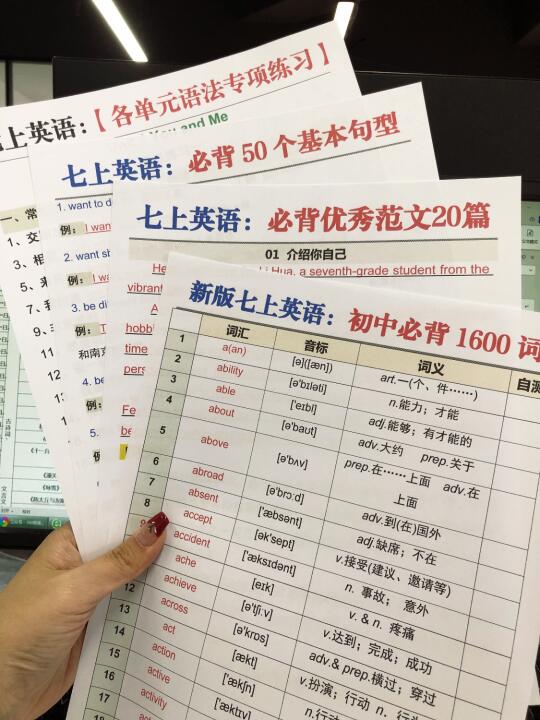 七上英语：【各单元语法专项练习】
You and Me
一、常
1、交
3、相
5、
7、
9、
七上英语：必背50个基本句型
1. want to d
例：I wan
2. want sh
例：I wa
3. be di
例：T
和南
4. be
例：
5.
例：
七上英语：必背优秀范文20篇
01 介绍你自己
He
Li Hua, a seventh-grade student from the
vibrant
A
hobb
time
pers
Fe
be
新版七上英语：初中必背1600词
词汇 音标 词义 自测
1 a(an) [ə]([æn]) art.一(个、件……)
2 ability [ə'bɪləti] n.能力；才能
3 able ['eɪbl] adj.能够；有才能的
4 about [ə'baʊt] adv.大约 prep.关于
5 above [ə'bʌv] prep.在……上面 adv.在上面
6 abroad [ə'brɔːd] adv.到(在)国外
7 absent ['æbsənt] adj.缺席；不在
8 accept [ək'sept] v.接受(建议、邀请等)
9 accident ['æksɪdənt] n. 事故； 意外
ache [eɪk] v. & n. 疼痛
achieve [ə'tʃiːv] v.达到；完成；成功
12 across [ə'krɒs] adv.& prep.横过；穿过
13 act [ækt] v.扮演；行动 n. 行为
14 action ['ækʃn] n.行动
15 active ['æktɪv]
16 activity
17
18